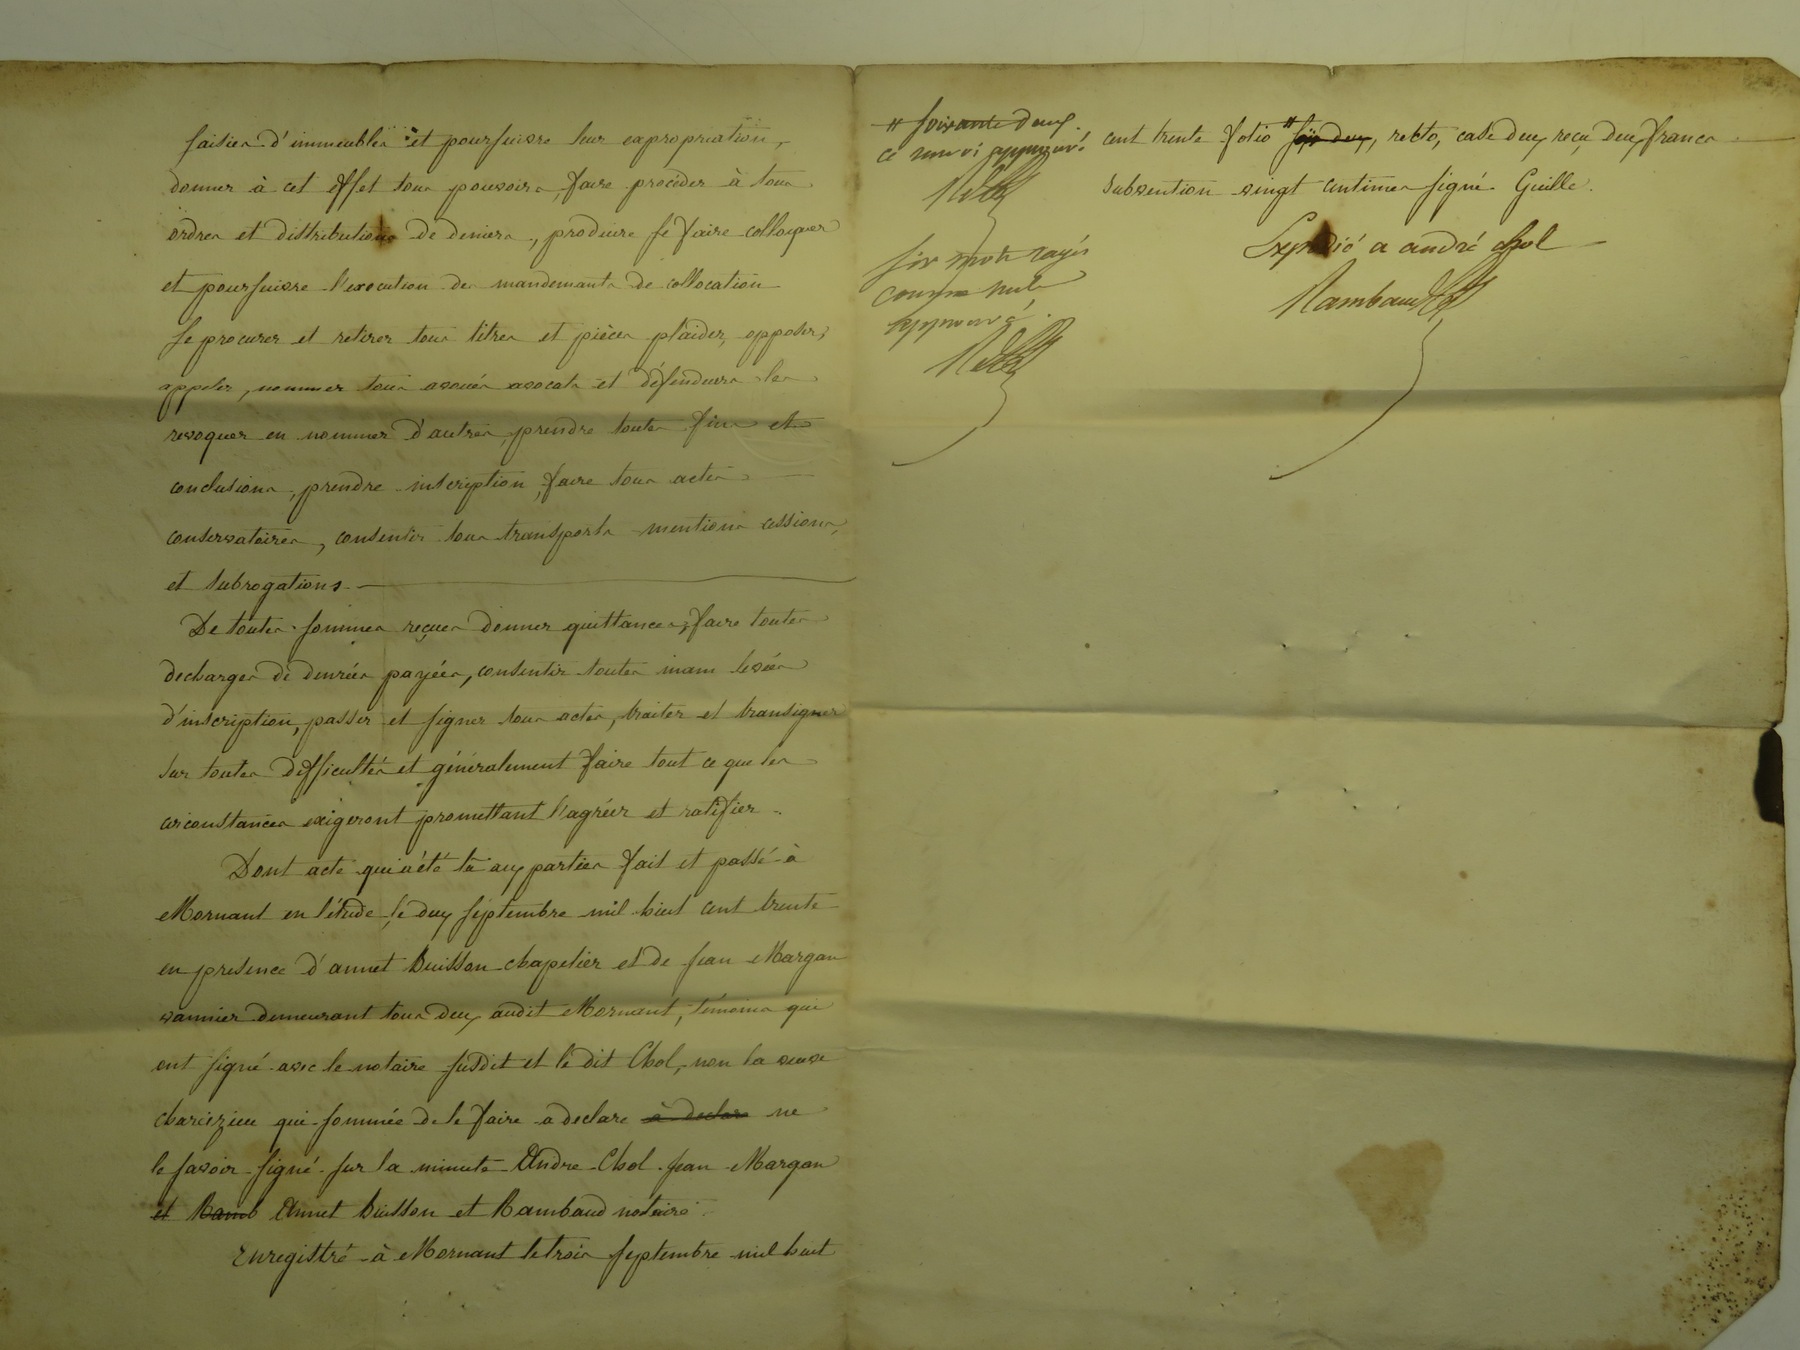 saisies d'immeubles et poursuivre leur expropriation,
donner à cet effet tous pouvoirs, faire procéder à tous
ordres et distributions de deniers, produire se faire colloquer
et poursuivre l'execution des mandemants de collocation
se procurer et retirer tous titres et pièces plaider, opposer,
appeler, nommer tous avoués avocats et défendeurs les
revoquer en nommer d'autres, prendre toutes fins et
conclusions, prendre inscription, faire tous actes
conservatoires, consentir tous transports mentions cessions,
et subrogations
De toutes sommes reçues donner quittances, faire toutes
decharges de denrées payées, consentir toutes main levées
d'inscription, passer et signer tous actes, traiter et transiger
sur toutes difficultés et généralement faire tout ce que les
circonstances exigeront promettant l'agréer et ratifier.
Dont acte qui a été lu aux parties fait et passé à
Mornant en l'étude, le deux septembre mil huit cent trente
en presence d'annet Buisson chapelier et de jean Margan
vannier demeurant tous deux audit Mornant, témoins qui
ont signé avec le notaire susdit et le dit Chol, non la veuve
charvezieu qui sommée de le faire a declare a declar ne
le savoir signé sur la minute Andre Chol jean Margan
et Ramb Annet Buisson et Rambaud notaire
Enregistré à Mornant le trois septembre mil huit
# soixante deux
ce renvoi approuvé
six mots rayés
comme nuls
approuvé.
cent trente folio # six deux, recto, case deux reçu deux francs
subvention vingt centimes signé Guille.
Expédié a andré chol
Rambaud